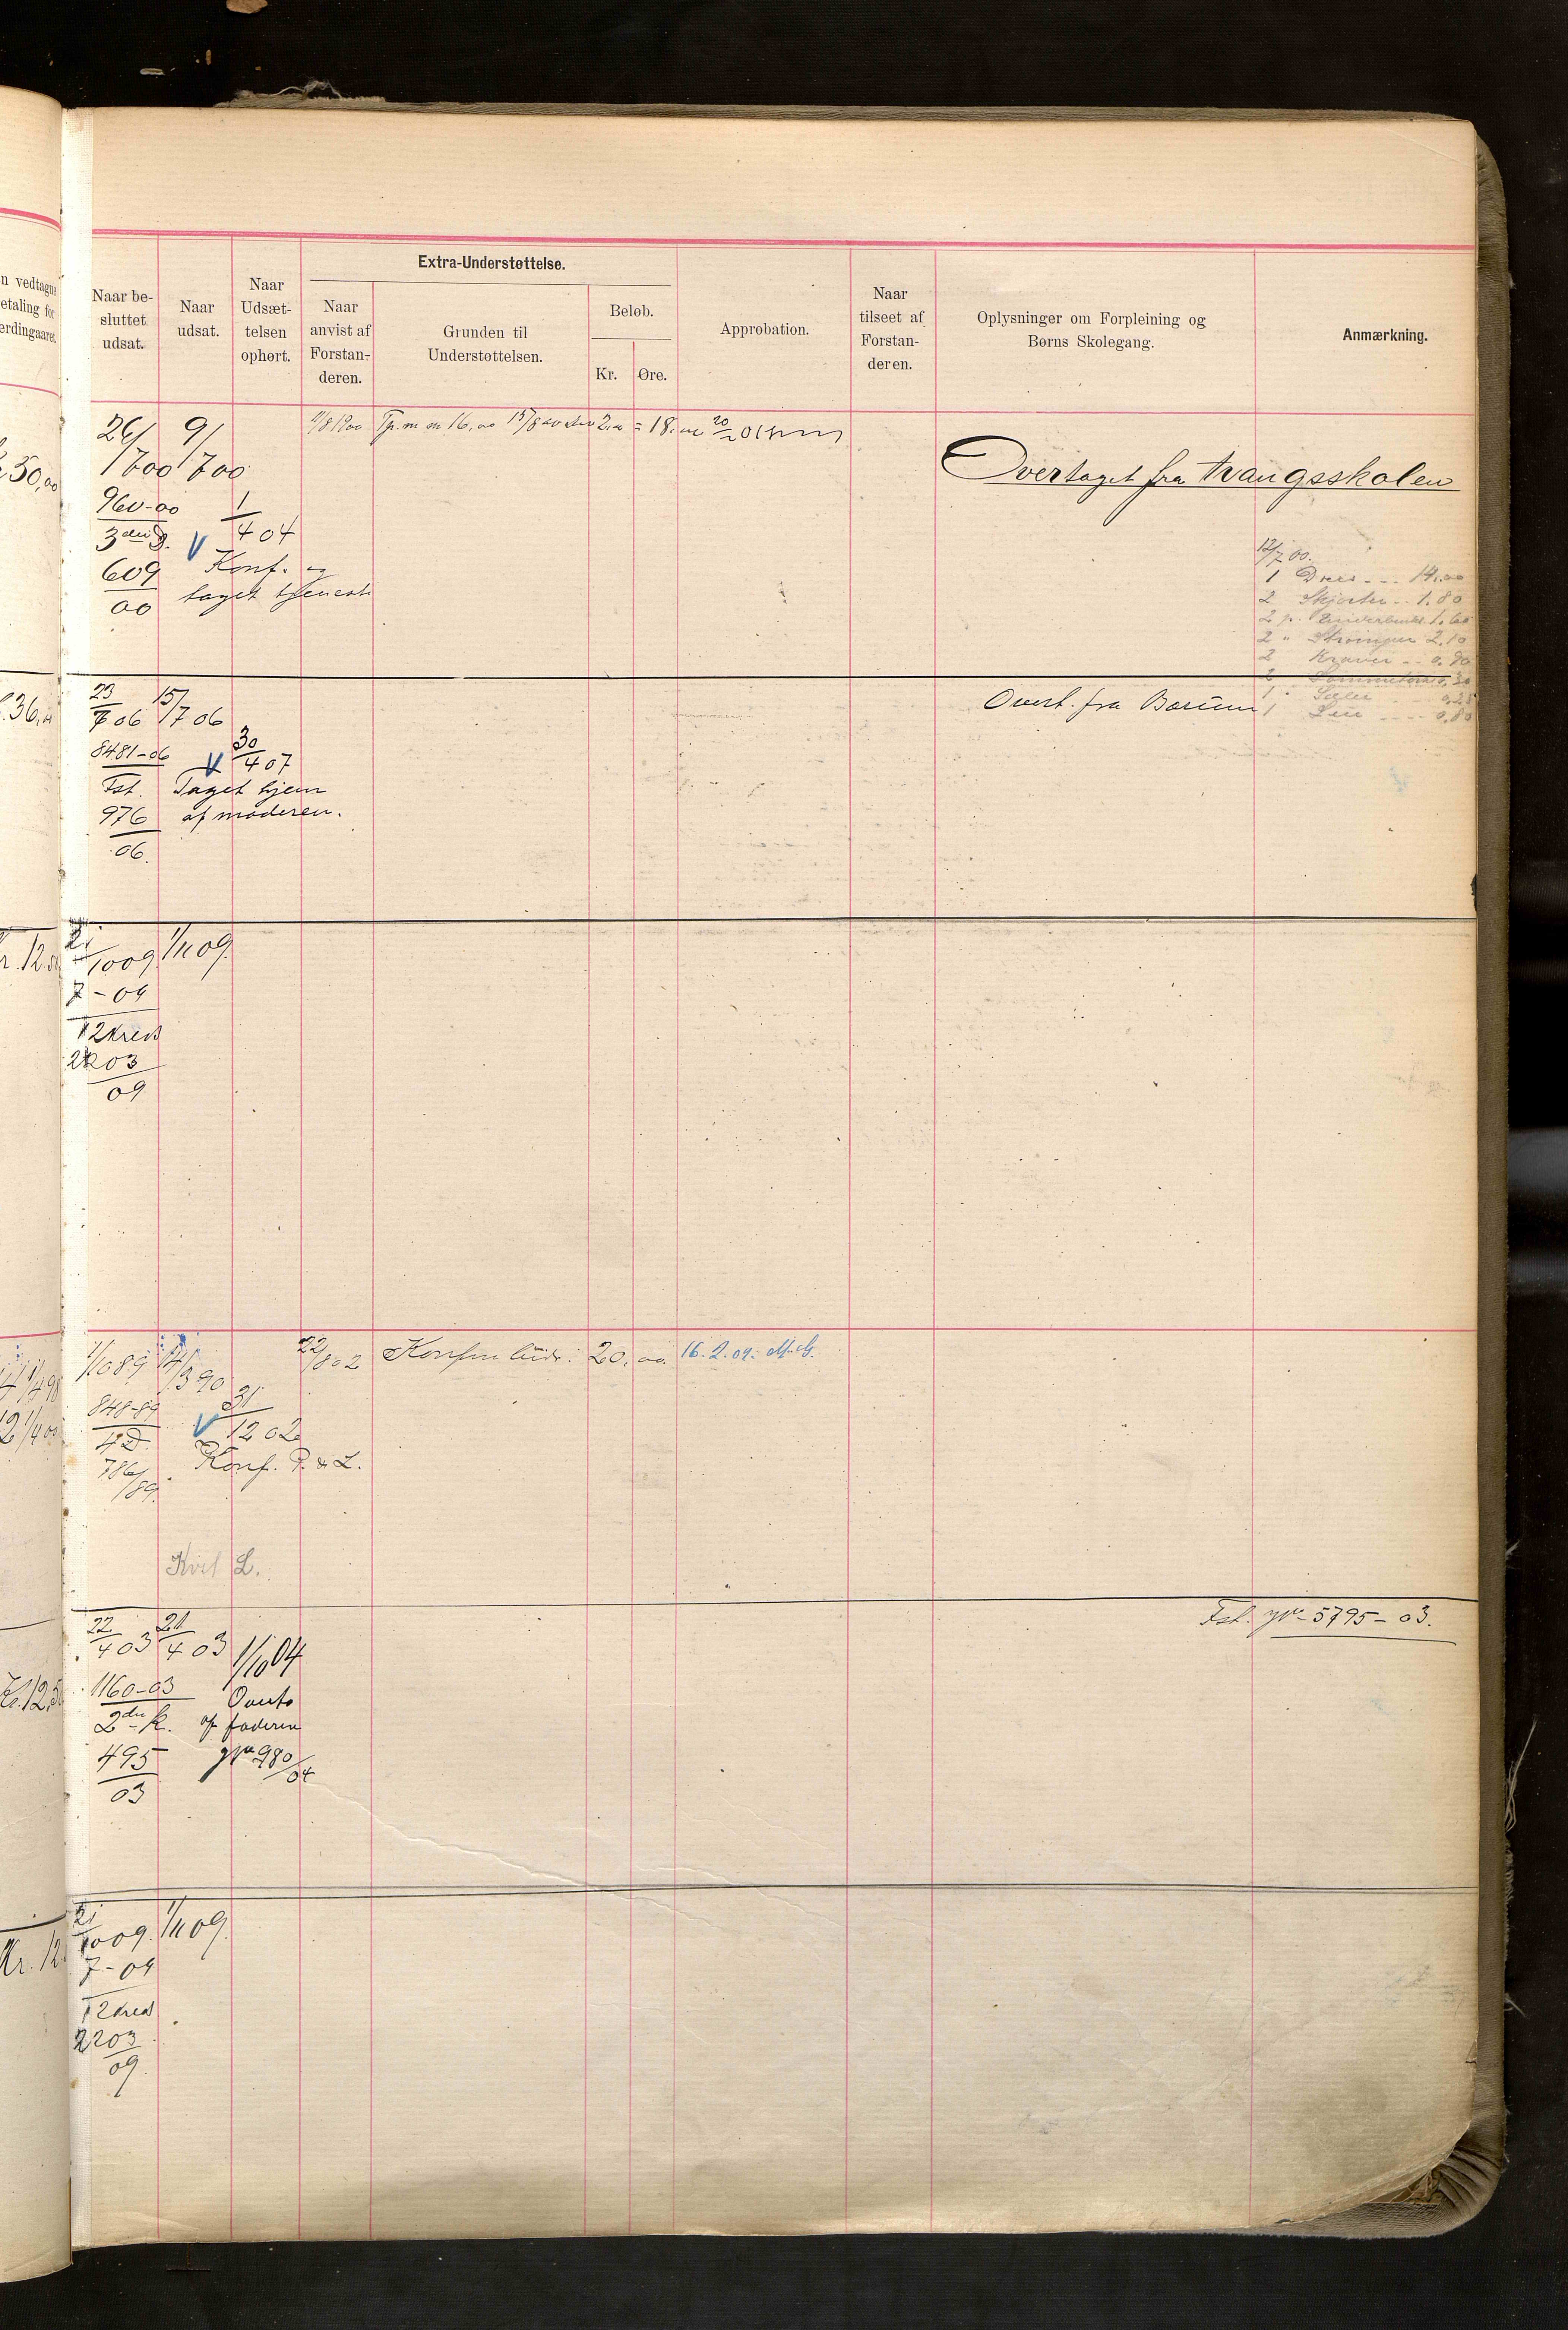 n vedtagne
etaling for
erdingaaret.
Naar be-
sluttet
udsat.
Naar
udsat.
Naar
Udsæt-
telsen
ophørt.
Extra-Understøttelse.
Naar
anvist af
Forstan-
deren.
Grunden til
Understøttelsen.
Beløb.
Kr.
Øre.
Approbation.
Naar
tilseet af
Forstan-
deren.
Oplysninger om Forpleining og
Børns Skolegang.
Anmærkning.
50,00
26/700
9/700
960-00
609
00
1/4 04
Konf. og
taget tjeneste
16,00 15/8
= 18,00
Overtaget fra tvangsskolen
12/7 00.
1 Dres - - - 14.00
2 Skjorter - - 1.80
2 Strømper 2.10
2 Kraver - - 0.80
1 Seler 0.25
1 0.80
36,
23/7 06
15/7 06
8481-06
Fst.
976
06.
V 30/4 07
Taget hjem
af moderen.
Overt. fra Bærum
r. 12.50
21/10 09
1/11 09.
7-09
12 kreds
2203
09
1/10 89
14/3 90
848-89
4 D.
786/89.
V 31/12 02
Konf. P. & L.
22/8 02
20,00
16.2.09.
Kvit L.
22/4 03
21/4 03
1/10 04
1160-03
2den K.
495
03
Overt.
af faderen
980/04
Fst. 5795-03.
Kr. 12,5
21/10 09.
1/11 09.
7-09
12 kreds
2203
09.
Kr. 12